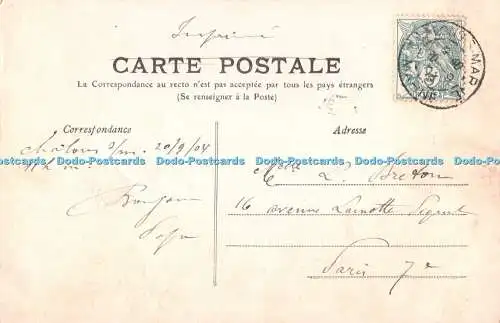 Imprimé
CARTE POSTALE
La Correspondance au recto n'est pas acceptée par tous les pays étrangers
(Se renseigner à la Poste)
Correspondance
Adresse
Châlons s/m. 20/9/04
11 h m.
Bonjour
L. Breton
16 avenue Lamotte Piquet
Paris 7e
Dodo-Postcards Dodo-Postcards Dodo-Postcards Dodo-Postcards Dodo-Postcards Dodo-Postcards